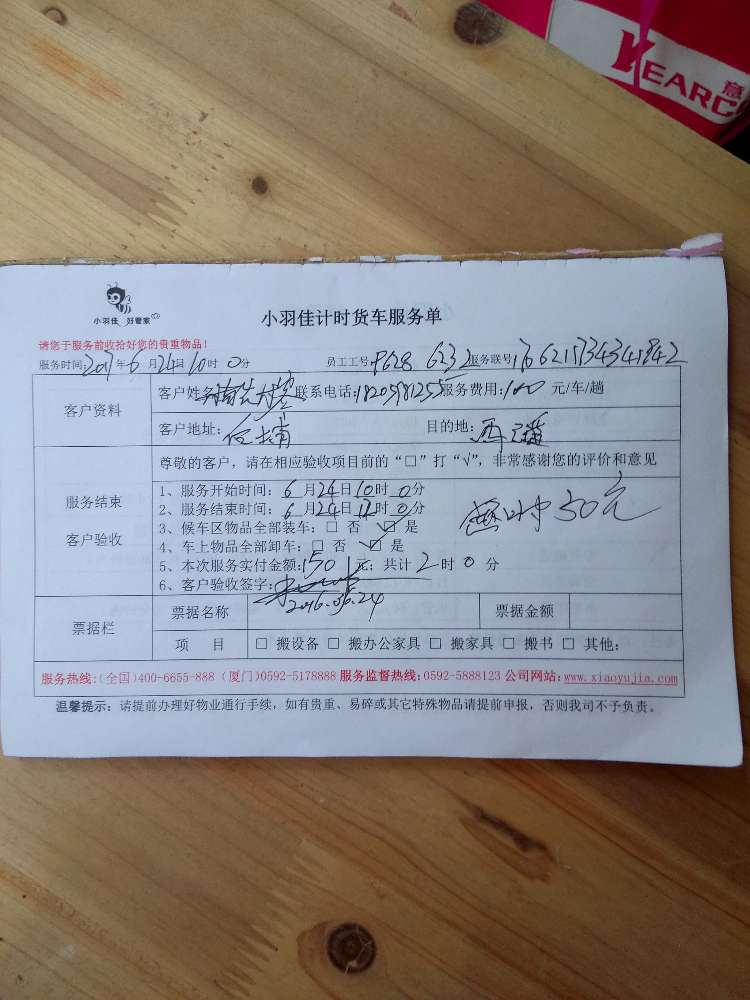 KEARC
意
小羽佳 好管家
小羽佳计时货车服务单
请您于服务前收拾好您的贵重物品!
服务时间: 年6月24日10时0分 员工工号: 8628 6232 服务联号:
客户资料
客户姓名 联系电话: 服务费用:100元/车/趟
客户地址: 目的地:
尊敬的客户,请在相应验收项目前的“□”打“√”,非常感谢您的评价和意见
服务结束
客户验收
1、服务开始时间:6月24日10时0分
2、服务结束时间:6月24日12时0分
3、候车区物品全部装车:□ 否 ☑ 是
4、车上物品全部卸车:□ 否 ☑ 是
超时50元
5、本次服务实付金额:150元;共计2时0分
6、客户验收签字:
2016.06.24
票据栏
票据名称 票据金额
项 目 □ 搬设备 □ 搬办公家具 □ 搬家具 □ 搬书 □ 其他:
服务热线:(全国)400-6655-888 (厦门)0592-5178888 服务监督热线:0592-5888123 公司网站:www.xiaoyujia.com
温馨提示:请提前办理好物业通行手续,如有贵重、易碎或其它特殊物品请提前申报,否则我司不予负责。